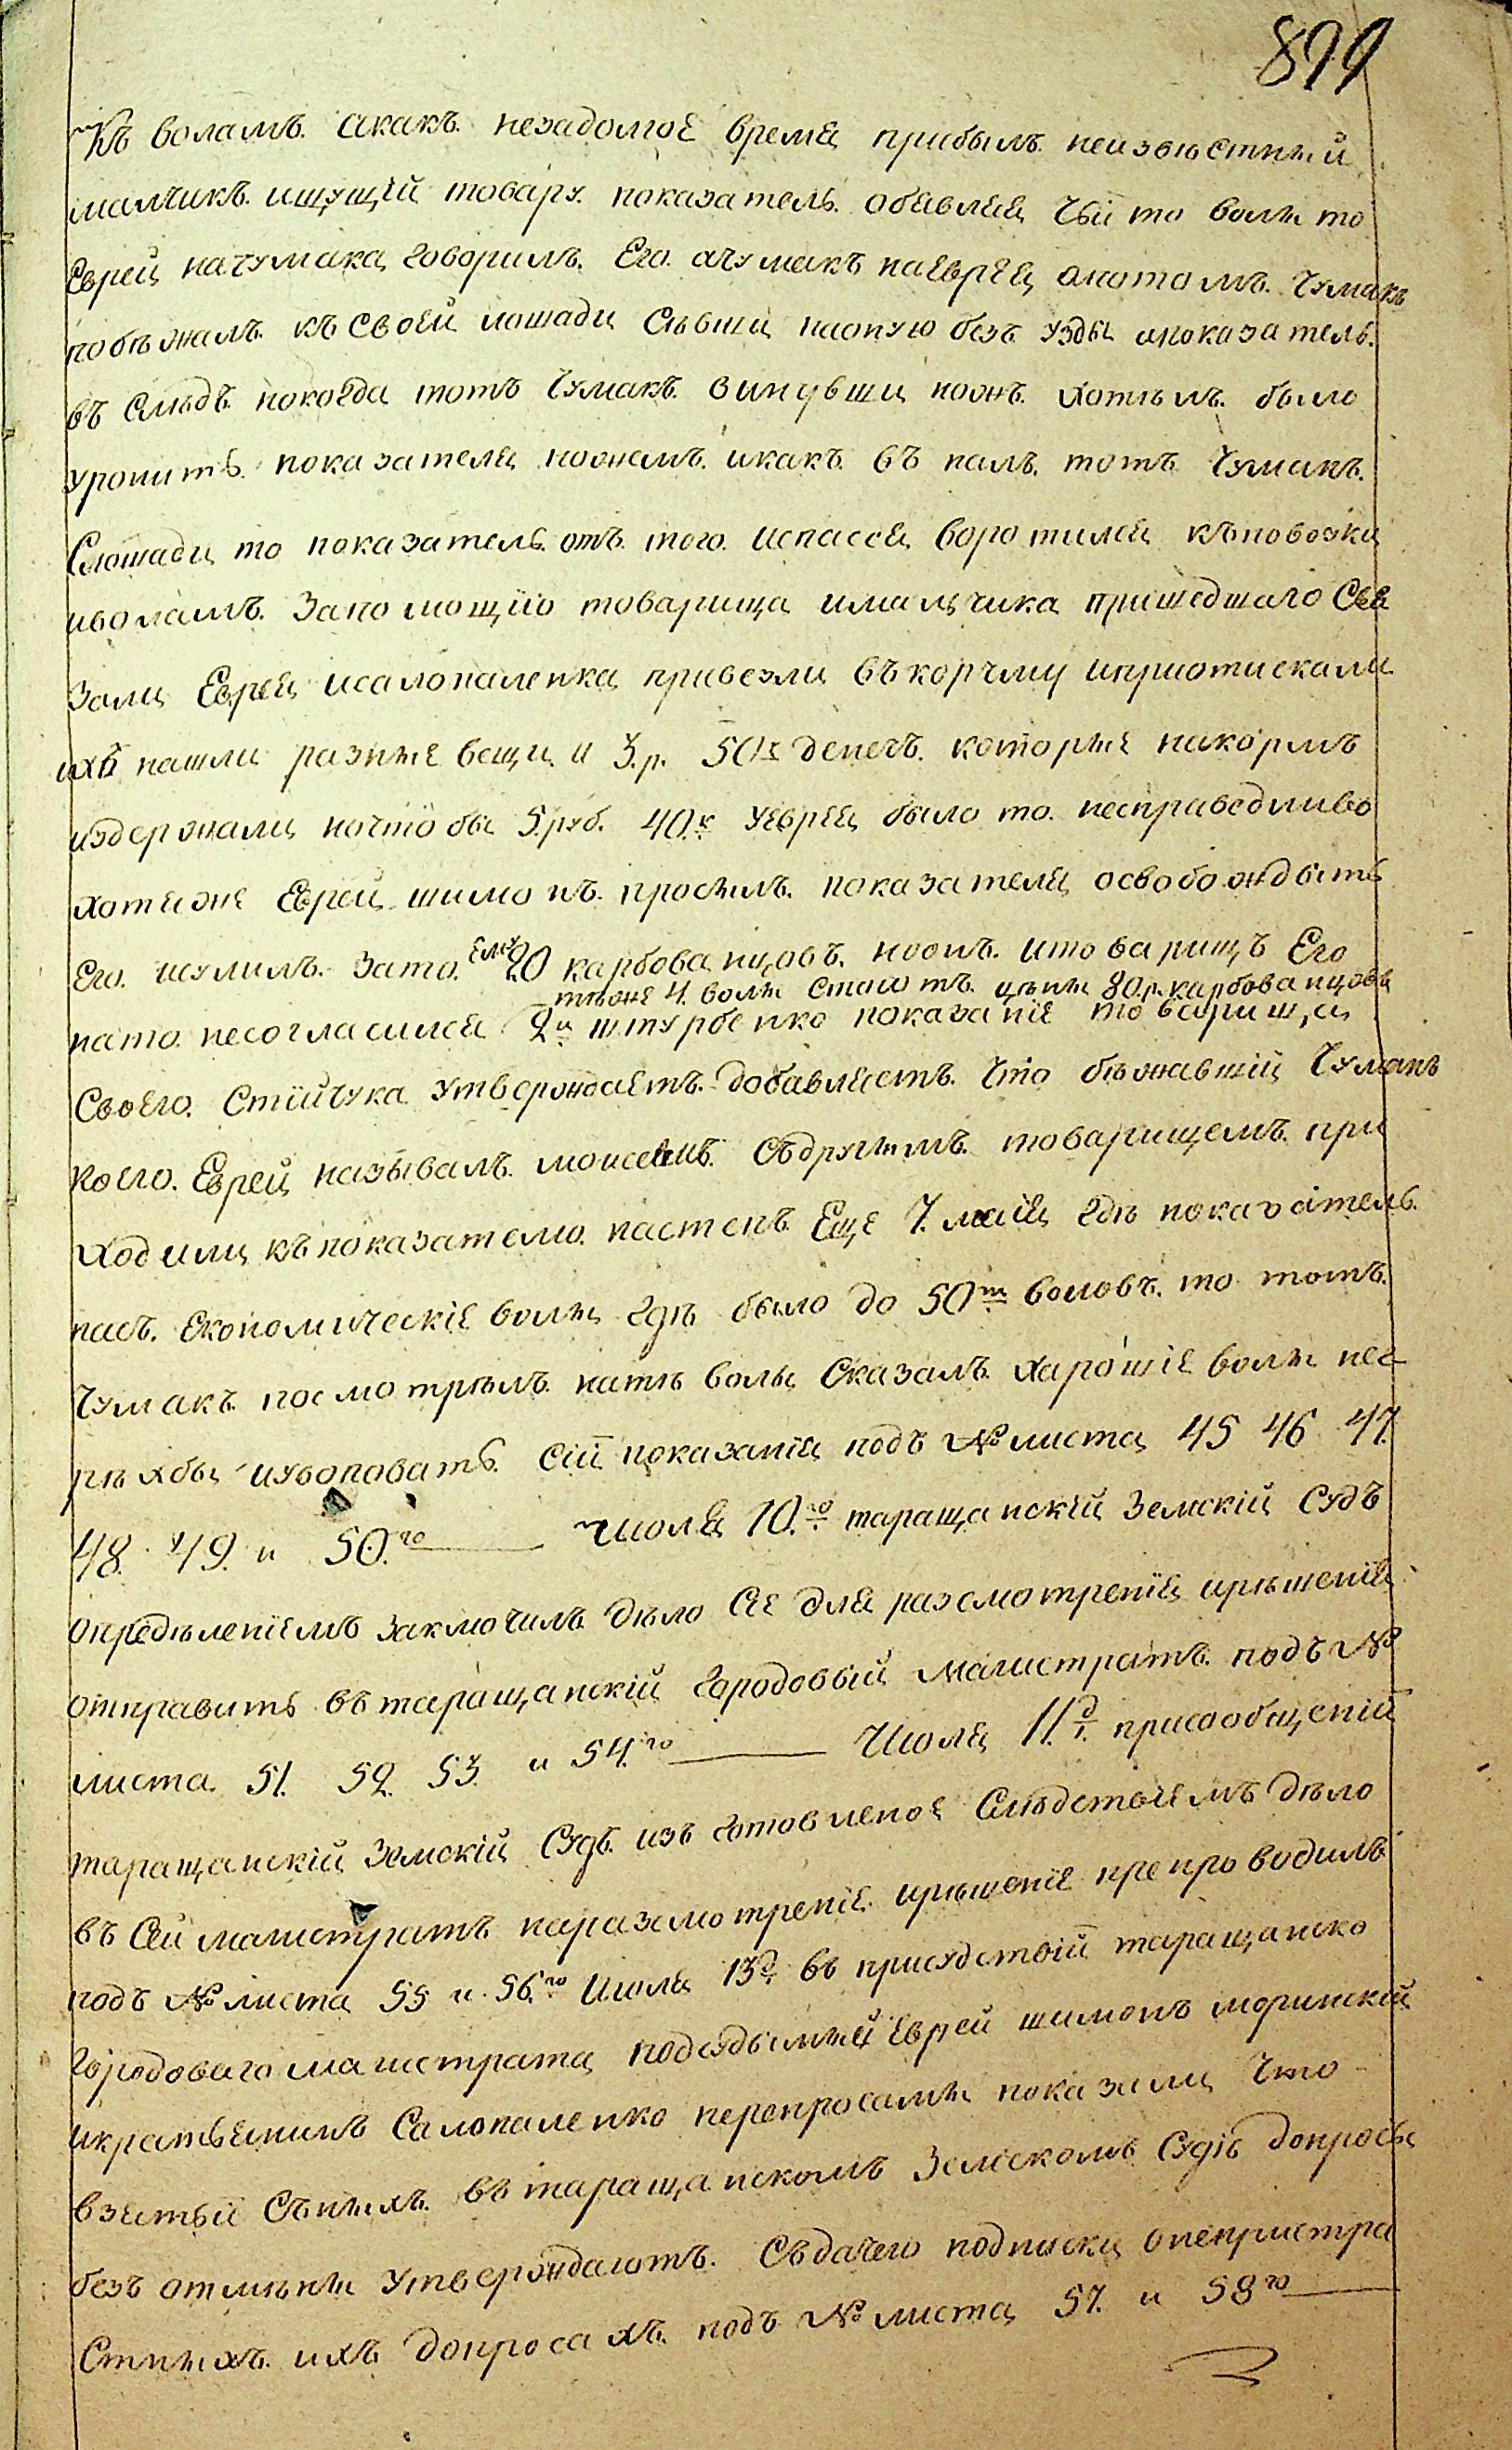 899
Къ воламъ. акакъ. незадолгое время прибылъ. неизвѣстный
малчикъ. ищущій товару. показатель. обявляя чьи то волы то
Еврей начумака говорилъ. Его. ачумакъ наеврея опотомъ. Чумакъ
побѣжалъ. къ своей лошади сѣвши наоную безъ узды ипоказатель.
въ слѣдъ. покогда тотъ Чумакъ. винувши ножъ. хотѣлъ. было
уронить. показателя ножемъ. икакъ. въ палъ. тотъ Чумакъ.
Слошади то показатель. отъ. того. испасся воротился къповозки
иволамъ. запомощію товарища имальчика пришедшаго Свя
зали Еврея исалопаленка привезли въкорчму иприотискали
ихъ нашли разные вещи и 3.р. 50к денегъ. которые накормъ
издержали ночтобы 5.руб. 40.к уеврея было то. несправедливо
хотяже Еврей шимонъ. просилъ. показателя освобождыть
Его. исулилъ. зато. Ему 20 карбованцовъ. нооиъ. итоварищъ Его
тѣже 4. волы стоютъ. цѣны 80.р. карбованцовъ
нато. несогласился 2й штурбенко показаніе товарища
своего. Стійчука утверждаетъ. добавляетъ. Что бѣжавшій Чумакъ
коего. Еврей называлъ. моисеемъ. Съдругимъ. товарищемъ. при
ходили къпоказателю. настепъ. Еще 7. маія гдѣ показатель.
пасъ. Економическіе волы гдѣ было до 50ти воловъ. то тотъ.
Чумакъ. посмотрѣлъ. натѣ волы сказалъ. харошіе волы нег
рѣхбы иуворовать. Сіи показанія подъ № листа 45 46 47.
48. 49. и 50.го Июля 10.го таращанскій Земскій Судъ
Опредѣленіемъ заключилъ дѣло сіе для разсмотренія ирѣшенія
отправить въ таращанскій городовый магистратъ. подъ №
листа 51. 52. 53. и 54.го Июля 11.д. присообщеніи
таращанскій Земскій Судъ. изъ готовленое Слѣдствіемъ дѣло
въ Сей магистратъ наразсмотреніе. ирѣшеніе препроводилъ
подъ № листа 55 и. 56.го Июля 13д въ присудствіи таращанско
городоваго магистрата подсудымый Еврей шимонъ моринскій
икрестьянинъ Салопаленко перепросамы показали Что
взятыи Съныхъ. въ таращанскомъ Земскомъ Судѣ допросы
безъ отмѣны утверждаютъ. Съдачею подписки опепристра
Стныхъ. ихъ допросахъ. подъ № листа 57. и 58го